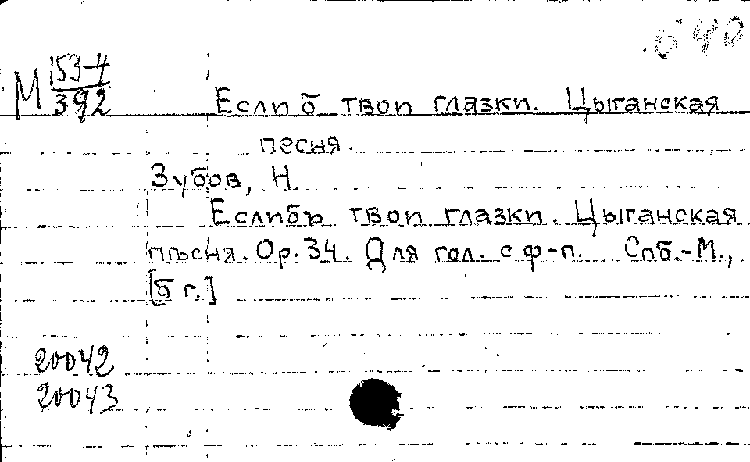 640
М 153-4
392
Если б твои глазки. Цыганская
песня.
Зубов, Н
Еслибъ твои глазки. Цыганская
пѣсня. Ор. 34. Для гол. с ф-п. Спб.-М.,
[б г.]
20042
20043